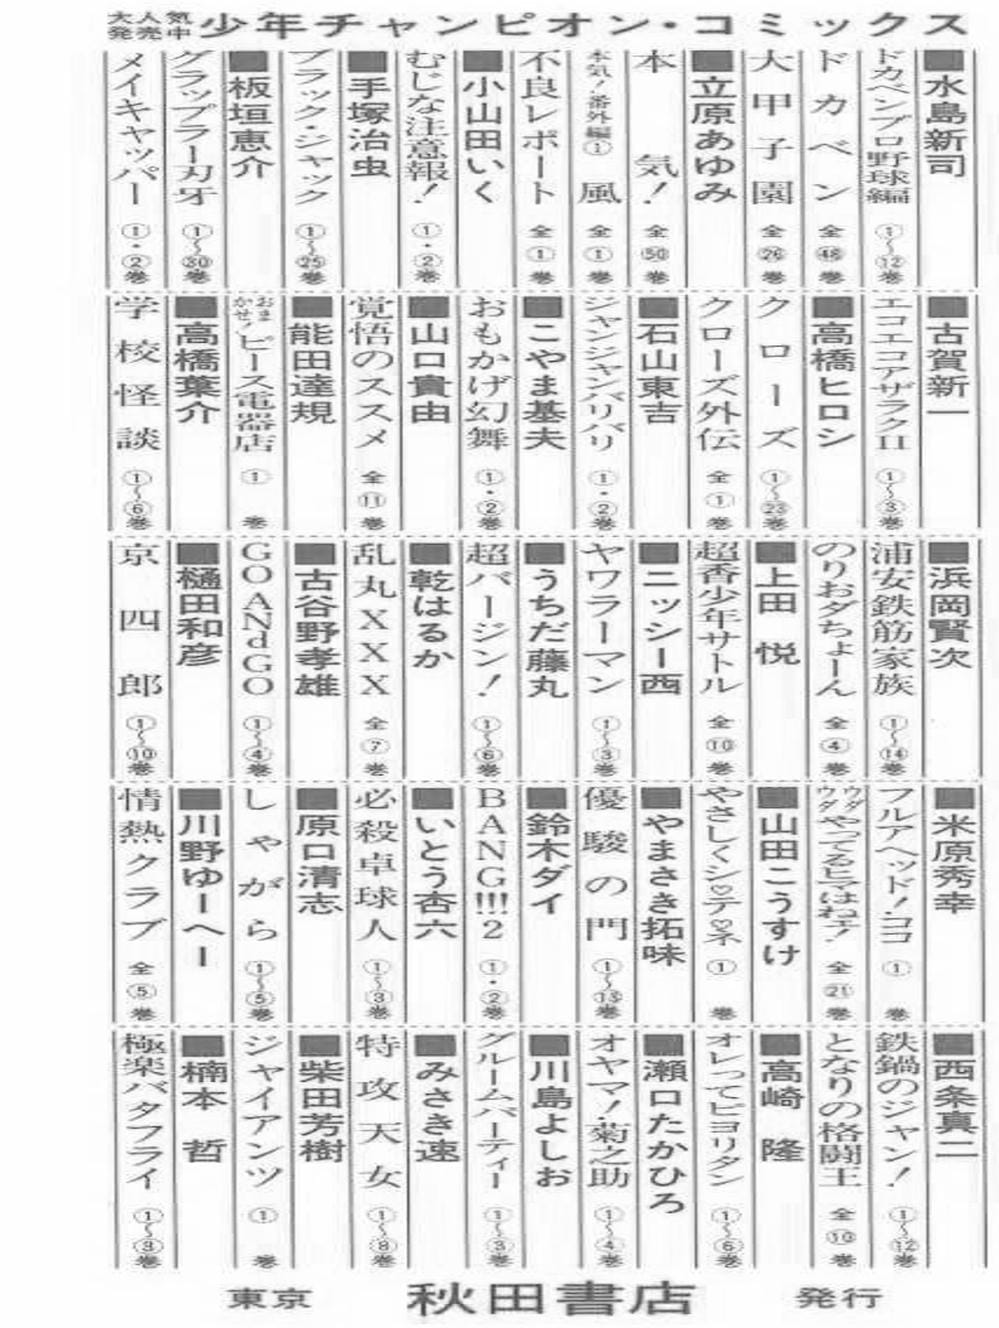 大人気発売中 少年チャンピオン・コミックス
■水島新司
ドカベンプロ野球編 ①〜⑫巻
ドカベン 全㊽巻
大甲子園 全㉖巻
■立原あゆみ
本気! 全㊿巻
本気!番外編① 風 全①巻
不良レポート 全①巻
■小山田いく
むじな注意報! ①・②巻
■手塚治虫
ブラック・ジャック ①〜㉕巻
■板垣恵介
グラップラー刃牙 ①〜㉚巻
メイキャッパー ①・②巻
■古賀新一
エコエコアザラクII ①〜③巻
■高橋ヒロシ
クローズ ①〜㉓巻
クローズ外伝 全①巻
■石山東吉
ジャンジャンバリバリ ①・②巻
■こやま基夫
おもかげ幻舞 ①・②巻
■山口貴由
覚悟のススメ 全⑪巻
■能田達規
おまかせ!ピース電器店 ①巻
■高橋葉介
学校怪談 ①〜⑥巻
■浜岡賢次
浦安鉄筋家族 ①〜⑭巻
のりおダちょーん 全④巻
■上田 悦
超香少年サトル 全⑩巻
■ニッシー西
ヤワラーマン ①〜③巻
■うちだ藤丸
超バージン! ①〜⑥巻
■乾はるか
乱丸XXX 全⑦巻
■古谷野孝雄
GOANdGO ①〜④巻
■樋田和彦
京四郎 ①〜⑩巻
■米原秀幸
フルアヘッド!ココ ①巻
ウダウダやってるヒマはねェ! 全㉑巻
■山田こうすけ
やさしくシ♡テ♡ネ ①巻
■やまさき拓味
優駿の門 ①〜⑬巻
■鈴木ダイ
BANG!!!2 ①・②巻
■いとう杏六
必殺卓球人 ①〜③巻
■原口清志
しゃがら ①〜⑤巻
■川野ゆーへー
情熱クラブ 全⑤巻
■西条真二
鉄鍋のジャン! ①〜⑫巻
となりの格闘王 全⑩巻
■高崎 隆
オレってピヨリタン ①〜⑥巻
■瀬口たかひろ
オヤマ!菊之助 ①〜④巻
■川島よしお
グルームパーティー ①〜③巻
■みさき速
特攻天女 ①〜⑧巻
■柴田芳樹
ジャイアンツ ①巻
■楠本 哲
極楽バタフライ ①〜③巻
東京 秋田書店 発行